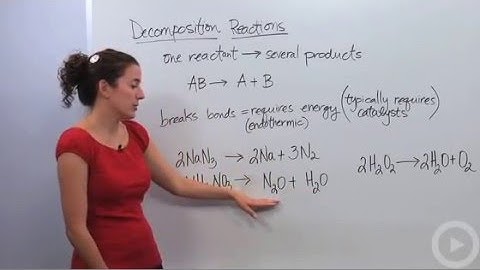 Decomposition Reactions
one reactant → several products
AB → A + B
breaks bonds = requires energy (typically requires catalysts)
(endothermic)
2NaN₃ → 2Na + 3N₂
NO₃ → N₂O + H₂O
2H₂O₂ → 2H₂O + O₂